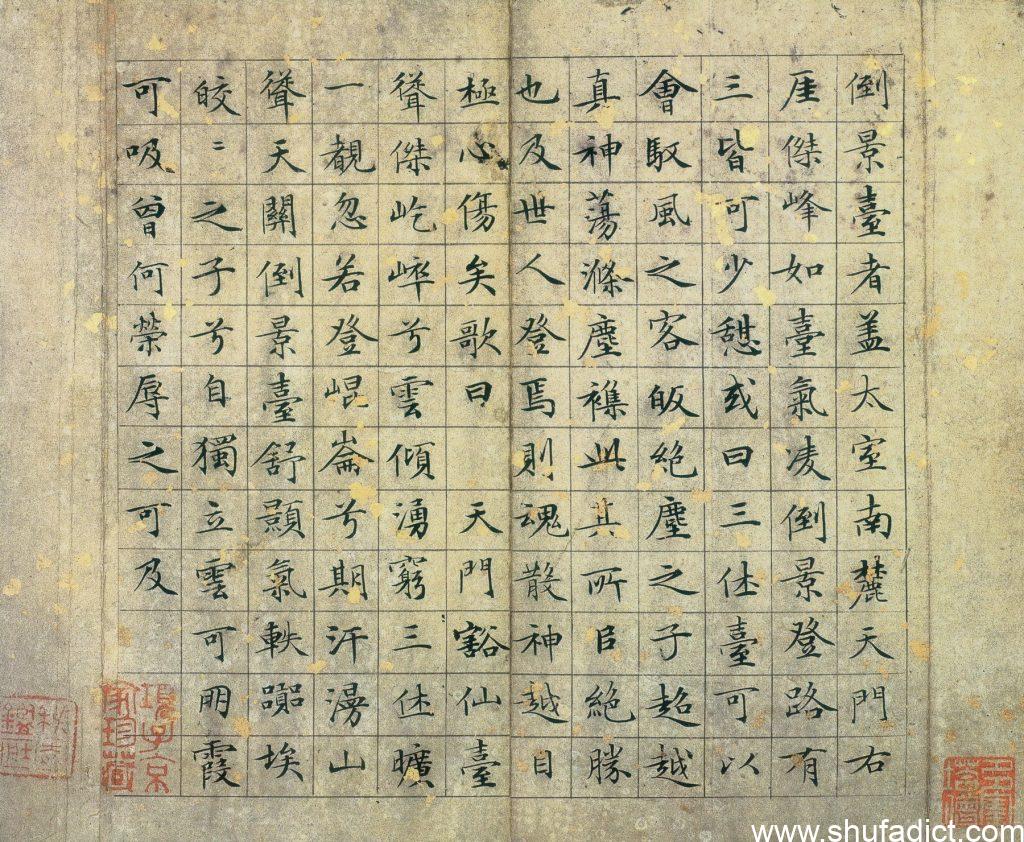 倒景臺者盖太室南麓天門右
厓傑峰如臺氣凌倒景登路有
三皆可少憩或曰三休臺可以
會馭風之客皈絶塵之子超越
真神蕩滌塵襍此其所㠯絶勝
也及世人登焉則魂散神越目
極心傷矣歌曰 天門豁仙臺
聳傑屹崒兮雲傾湧窮三休曠
一覩忽若登崐崙兮期汗漫山
聳天關倒景臺舒顥氣軼嚻埃
皎〻之子兮自獨立雲可朋霞
可吸曾何榮辱之可及
項子京家珍藏
www.shufadict.com